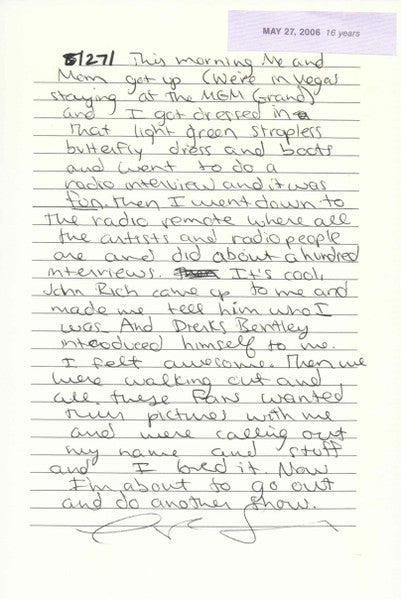 MAY 27, 2006 16 years
5/27/ This morning Me and
Mom got up (We're in Vegas
staying at The MGM Grand)
and I got dressed in
that light green strapless
butterfly dress and boots
and went to do a
radio interview and it was
fun. Then I went down to
the radio remote where all
the artists and radio people
are and did about a hundred
interviews. It's cool,
John Rich came up to me and
made me tell him who I
was. And Dierks Bentley
introduced himself to me.
I felt awesome. Then we
were walking out and
all these fans wanted
their pictures with me
and were calling out
my name and stuff
and I loved it. Now
I'm about to go out
and do another show.